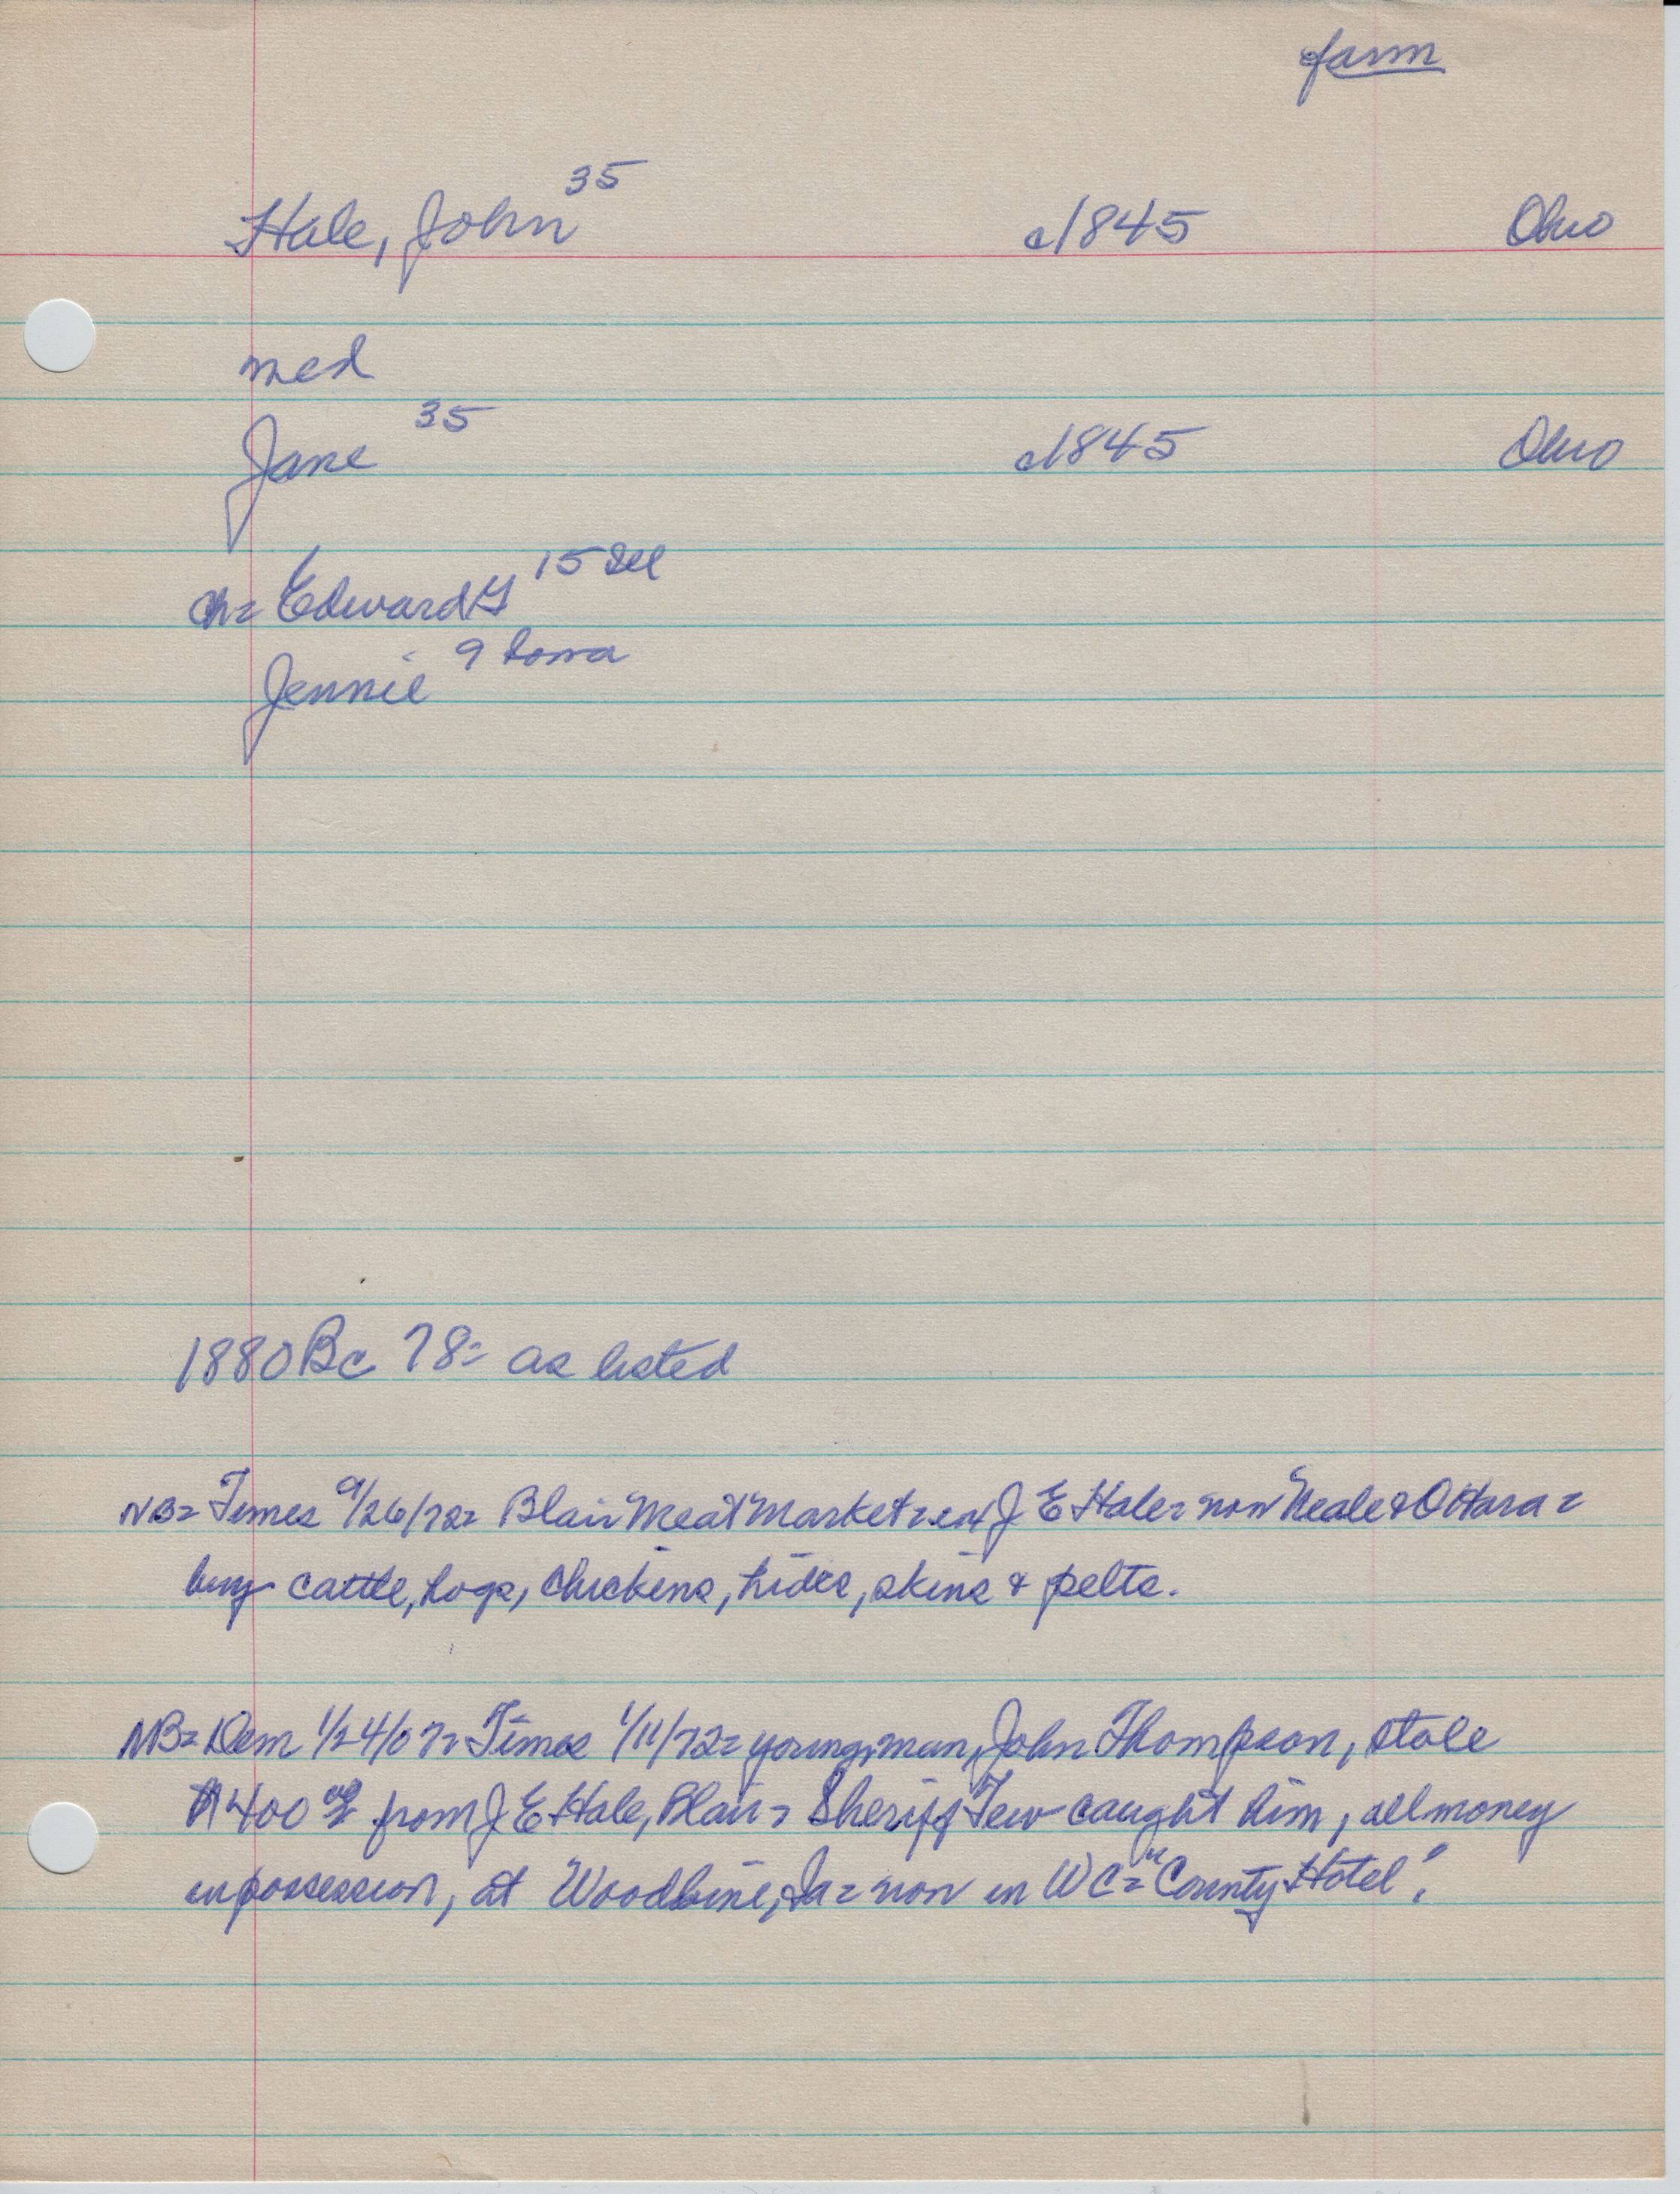 farm
Hale, John 35 c1845 Ohio
med
Jane 35 c1845 Ohio
ch= Edward G 15 Ill
Jennie 9 Iowa
1880 Bc 78= as listed
NB= Times 9/26/72= Blair Meat Market= ex J E Hale= now Neale & OHara=
buy cattle, hogs, chickens, hides, skins & pelts.
NB= Dem 1/24/07= Times 1/11/72= young man, John Thompson, stole
$400 from J E Hale, Blair= Sheriff Tew caught him, all money
in possession, at Woodbine, Ia= now in WC= "County Hotel".